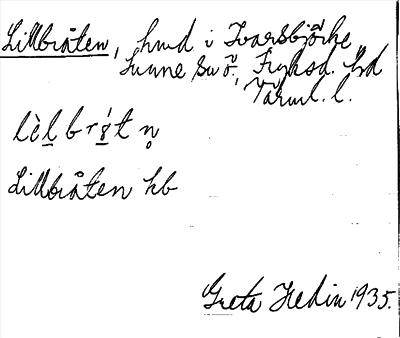 Lillbråten, hmd i Ivarsbjörke,
Sunne sn ö., Fryksd. hd
Värml. l.
lèl brǻt n̥
Lillbråten kb
Greta Hedin 1935.